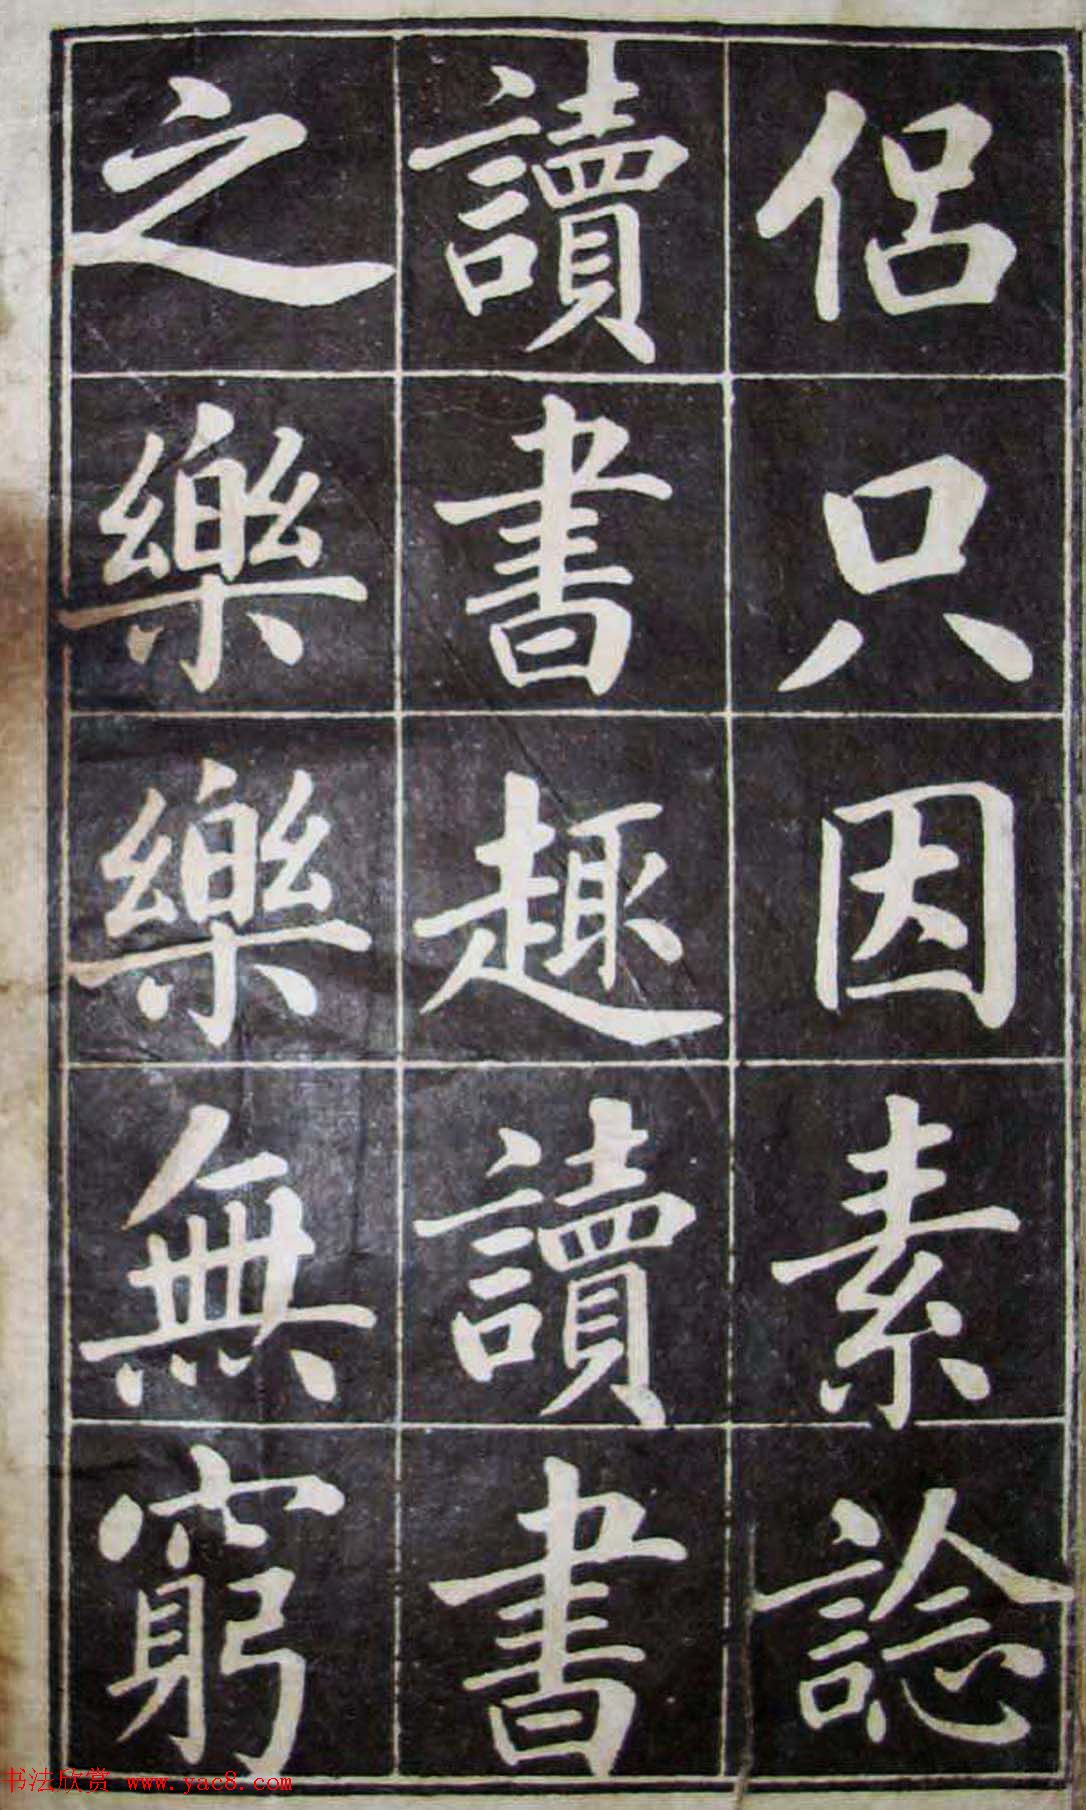 侣只因素諗
讀書趣讀書
之樂樂無窮
书法欣赏 www.yac8.com